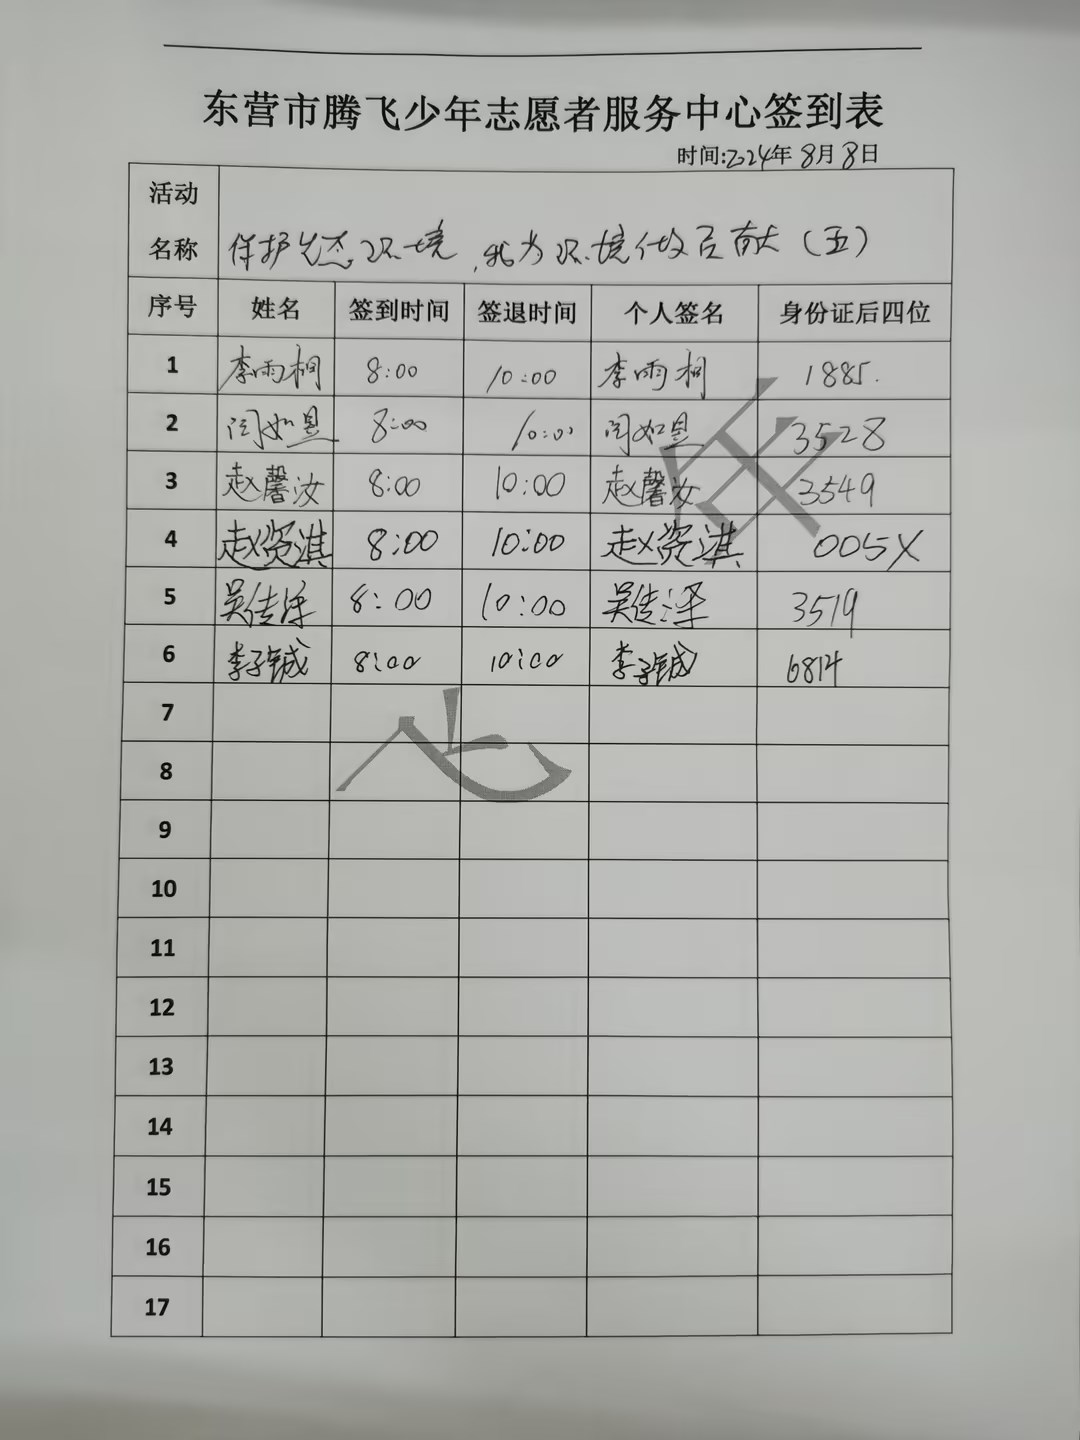 东营市腾飞少年志愿者服务中心签到表
时间:2024年8月8日
活动名称 保护生态环境,我为环境做贡献(五)
序号 姓名 签到时间 签退时间 个人签名 身份证后四位
1 李雨桐 8:00 10:00 李雨桐 1885.
2 闫如昱 8:00 10:00 闫如昱 3528
3 赵馨汝 8:00 10:00 赵馨汝 3549
4 赵资淇 8:00 10:00 赵资淇 005X
5 吴佳泽 8:00 10:00 吴佳泽 3519
6 李子铖 8:00 10:00 李子铖 6814
7
8
9
10
11
12
13
14
15
16
17
年
心